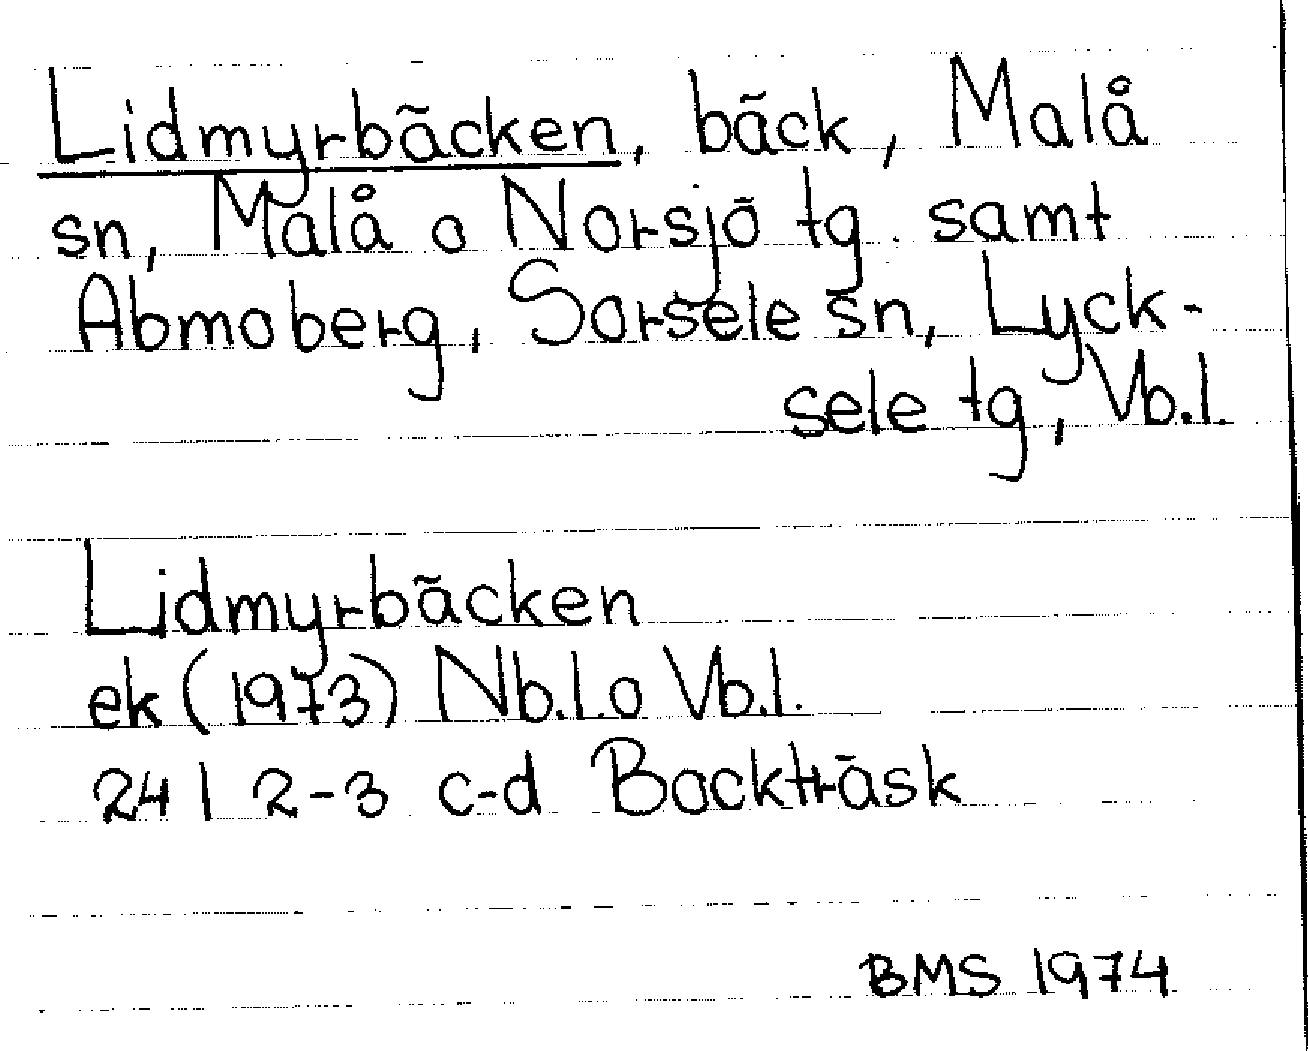 Lidmyrbäcken, bäck, Malå
sn, Malå o Norsjö tg. samt
Abmoberg, Sorsele sn, Lyck-
sele tg, Vb.l.
Lidmyrbäcken
ek (1973) Nb.l.o Vb.l.
24 I 2-3 c-d Backträsk
BMS 1974